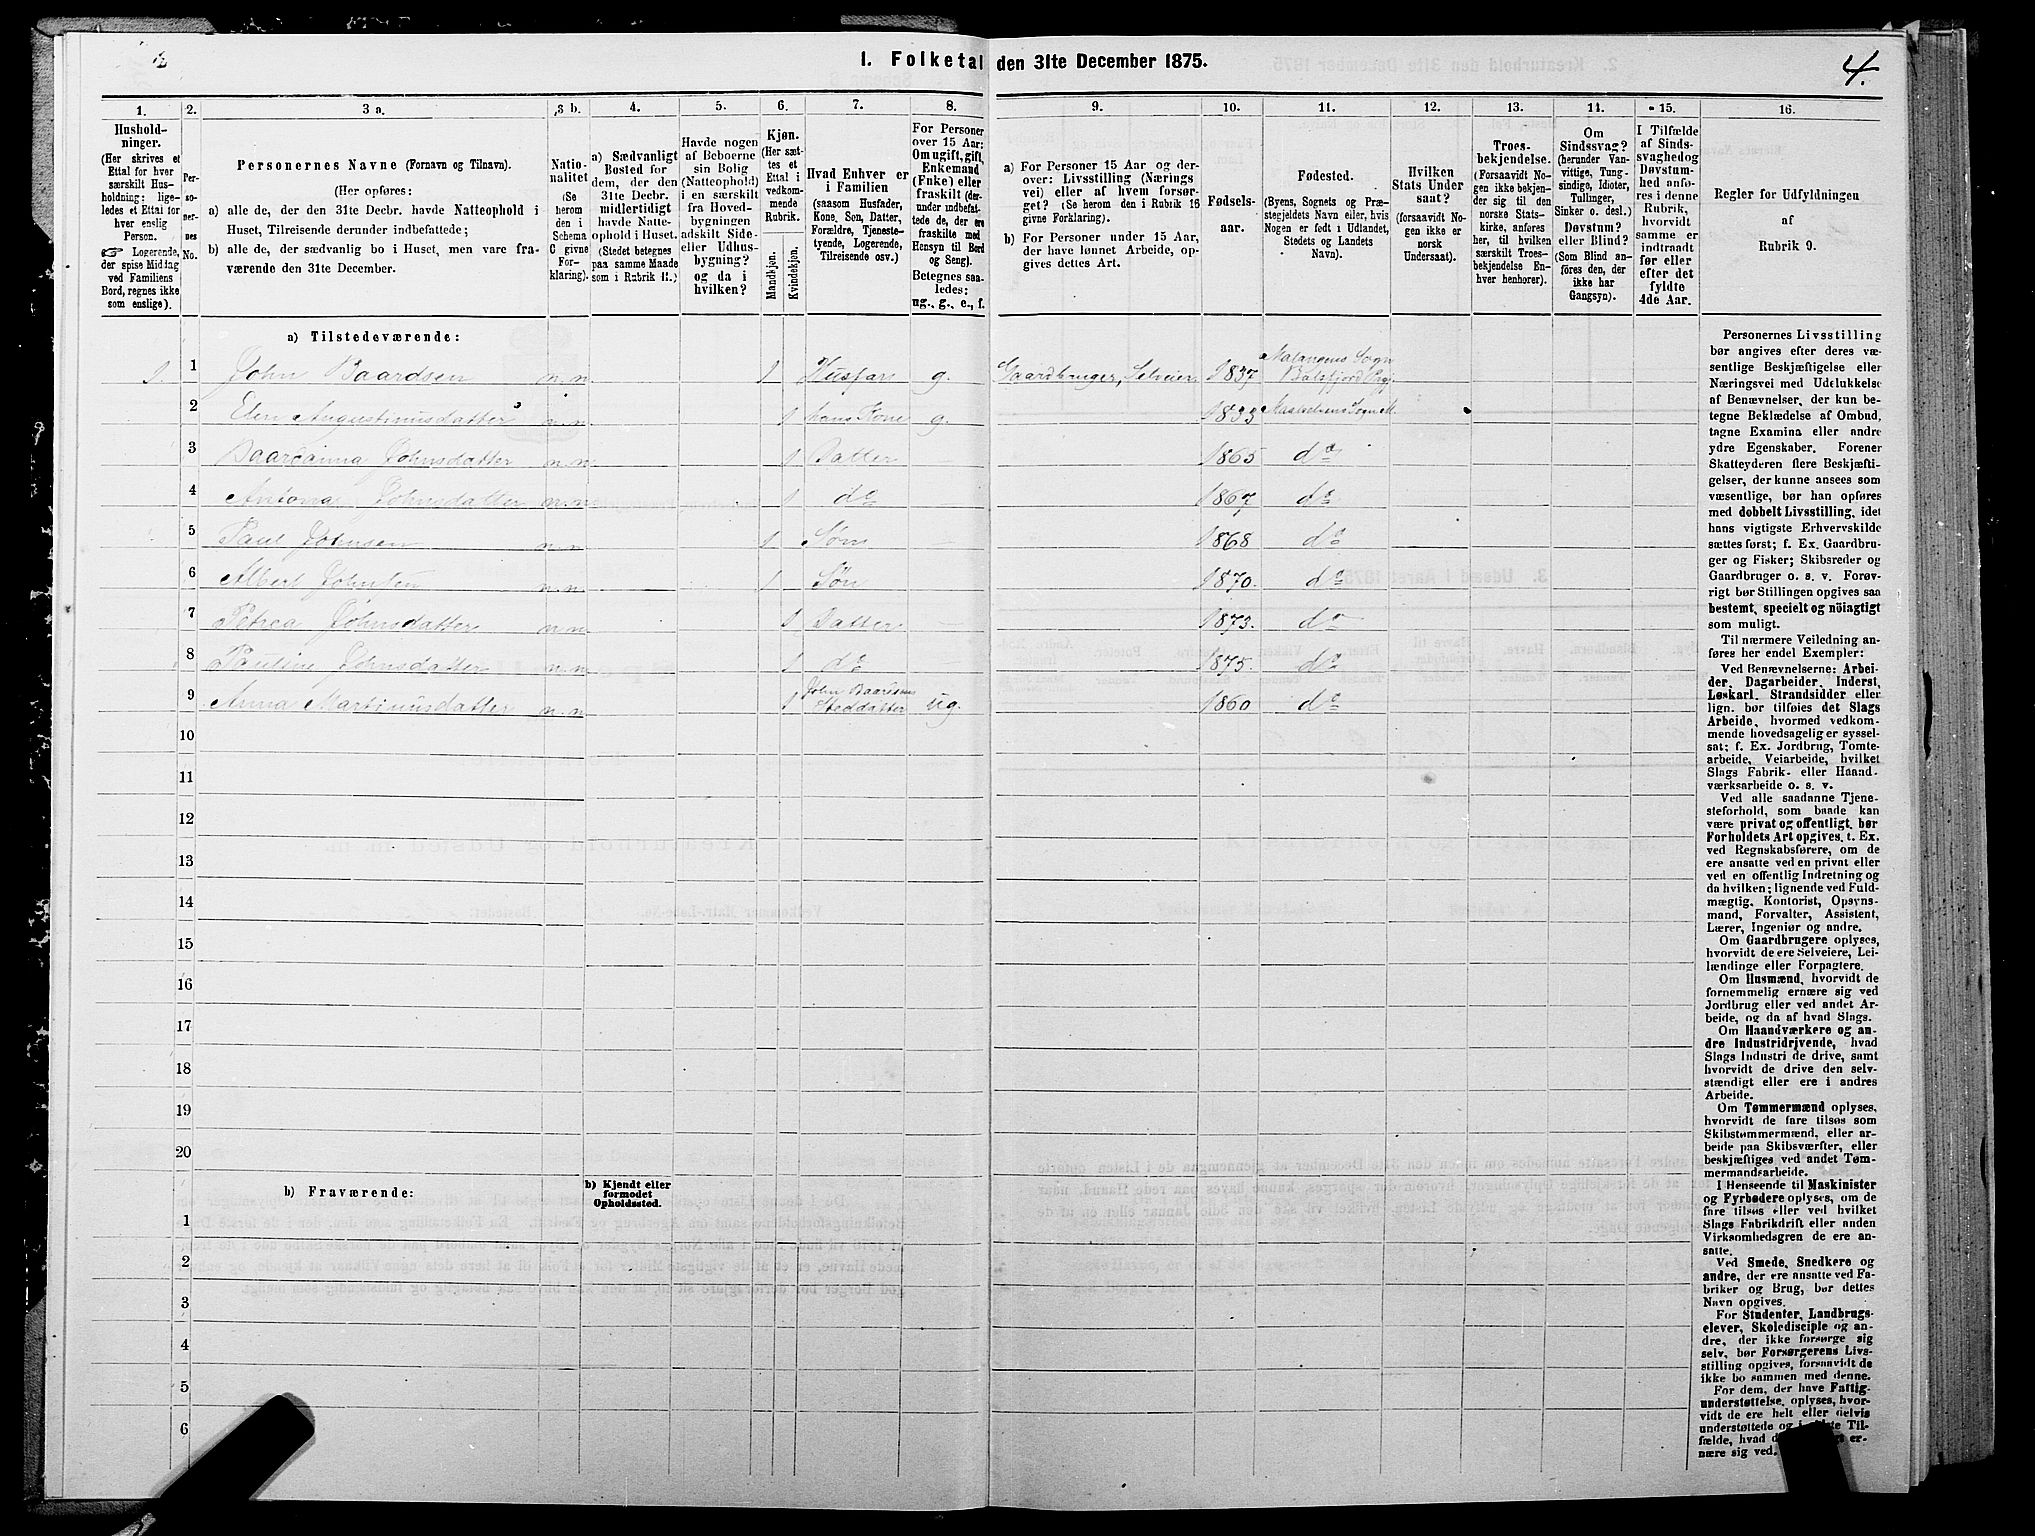 I. Folketal den 31te December 1875.
4.
1.
Hushold-
ninger.
(Her skrives et
Ettal for hver
særskilt Hus-
holdning: lige-
ledes et Ettal for
hver enslig
Person.
☞ Logerende,
der spise Middag
ved Familiens
Bord, regnes ikke
som enslige).
2.
Per-
so-
ner-
nes
No.
3 a.
Personernes Navne (Fornavn og Tilnavn).
(Her opføres:
a) alle de, der den 31te Decbr. havde Natteophold i
Huset, Tilreisende derunder indbefattede;
b) alle de, der sædvanlig bo i Huset, men vare fra-
værende den 31te December.
3 b.
Natio-
nalitet
(Se
herom
den i
Schema
C givne
For-
klaring).
4.
a) Sædvanligt
Bosted for
dem, der den
31te Decbr.
midlertidigt
havde Natte-
ophold i Huset.
(Stedet betegnes
paa samme Maade
som i Rubrik 11.)
5.
Havde nogen
af Beboerne
sin Bolig
(Natteophold)
i en særskilt
fra Hoved-
bygningen
adskilt Side-
eller Udhus-
bygning?
og da i
hvilken?
6.
Kjøn.
(Her sæt-
tes et
Ettal i
vedkom-
mende
Rubrik.
Mandkjøn.
Kvindekjøn.
7.
Hvad Enhver er
i Familien
(saasom Husfader,
Kone, Søn, Datter,
Forældre, Tjeneste-
tyende, Logerende,
Tilreisende osv.)
8.
For Personer
over 15 Aar:
Om ugift, gift,
Enkemand
(Enke) eller
fraskilt (der-
under indbefat-
tede de, der ere
fraskilte med
Hensyn til Bord
og Seng).
Betegnes saa-
ledes:
ug., g., e., f.
9.
a) For Personer 15 Aar og der-
over: Livsstilling (Nærings
vei) eller af hvem forsør-
get? (Se herom den i Rubrik 16
givne Forklaring).
b) For Personer under 15 Aar,
der have lønnet Arbeide, op-
gives dettes Art.
10.
Fødsels-
aar.
11.
Fødested.
(Byens, Sognets og Præ-
stegjeldets Navn eller, hvis
Nogen er født i Udlandet,
Stedets og Landets
Navn).
12.
Hvilken
Stats Under
saat?
(forsaavidt No-
gen ikke er
norsk
Undersaat).
13.
Troes-
bekjendelse.
(Forsaavidt No-
gen ikke bekjen-
der sig til den
norske Stats-
kirke, anføres
her, til hvilken
særskilt Troes-
bekjendelse En-
hver henhører).
14.
Om
Sindssvag?
(herunder Van-
vittige, Tung-
sindige, Idioter,
Tullinger,
Sinker o. desl.)
Døvstum?
eller Blind?
(Som Blind an-
føres den, der
ikke har
Gangsyn).
15.
I Tilfælde
af Sinds-
svaghed og
Døvstum-
hed anfø-
res i denne
Rubrik,
hvorvidt
samme er
indtraadt
før eller
efter det
fyldte
4de Aar.
16.
Regler for Udfyldningen
af
Rubrik 9.
a) Tilstedeværende:
1. 1 John Baardsen n.n. 1 Husfar g. Gaardbruger, Selveier 1837 Malangens Sogn Balsfjord Prgj.
2 Elen Augustinusdatter n.n. 1 hans Kone g. 1833
3 Baardanna Johnsdatter n.n. 1 Datter 1865 do
4 Antona Johnsdatter n.n. 1 do 1867 do
5 Paul Johnsen n.n. 1 Søn 1868 do
6 Albert Johnsen n.n. 1 Søn 1870. do
7 Petrea Johnsdatter n.n. 1 Datter 1873. do
8 Pauline Johnsdatter n.n. 1 do 1875. do
9 Anna Martinusdatter n.n. 1 John Baardsens Steddatter ug. 1860 do
10
11
12
13
14
15
16
17
18
19
20
b) Fraværende:
b) Kjendt eller
formodet
Opholdssted.
1
2
3
4
5
6
Personernes Livsstilling
bør angives efter deres væ-
sentlige Beskjæftigelse eller
Næringsvei med Udelukkelse
af Benævnelser, der kun be-
tegne Beklædelse af Ombud,
tagne Examina eller andre
ydre Egenskaber. Forener
Skatteyderen flere Beskjæfti-
gelser, der kunne ansees som
væsentlige, bør han opføres
med dobbelt Livsstilling, idet
hans vigtigste Erhvervskilde
sættes først; f. Ex. Gaardbru-
ger og Fisker; Skibsreder og
Gaardbruger o. s. v. Forøv-
rigt bør Stillingen opgives saa
bestemt, specielt og nöiagtigt
som muligt.
Til nærmere Veiledning an-
føres her endel Exempler:
Ved Benævnelserne: Arbei-
der, Dagarbeider, Inderst,
Løskarl, Strandsidder eller
lign. bør tilføies det Slags
Arbeide, hvormed vedkom-
mende hovedsagelig er syssel-
sat; f. Ex. Jordbrug, Tomte-
arbeide, Veiarbeide, hvilket
Slags Fabrik- eller Haand-
værksarbeide o. s. v.
Ved alle saadanne Tjene-
steforhold, som baade kan
være privat og offentligt, bør
Forholdets Art opgives, t. Ex.
ved Regnskabsførere, om de
ere ansatte ved en privat eller
ved en offentlig Indretning og
da hvilken; lignende ved Fuld-
mægtig, Kontorist, Opsyns-
mand, Forvalter, Assistent,
Lærer, Ingeniør og andre.
Om Gaardbrugere oplyses,
hvorvidt de ere Selveiere, Lei-
lændinge eller Forpagtere.
Om Husmænd, hvorvidt de
fornemmelig ernære sig ved
Jordbrug eller ved andet Ar-
beide, og da af hvad Slags.
Om Haandværkere og an-
dre Industridrivende, hvad
Slags Industri de drive, samt
hvorvidt de drive den selv-
stændigt eller ere i andres
Arbeide.
Om Tømmermænd oplyses,
hvorvidt de fare tilsøs som
Skibstømmermænd, eller ar-
beide paa Skibsværfter, eller
beskjæftiges ved andet Tøm-
mermandsarbeide.
I Henseende til Maskinister
og Fyrbødere oplyses, om de
fare tilsøs eller ved hvilket
Slags Fabrikdrift eller anden
Virksomhedsgren de ere an-
satte.
Ved Smede, Snedkere og
andre, der ere ansatte ved Fa-
briker og Brug, bør dettes
Navn opgives.
For Studenter, Landbrugs-
elever, Skoledisciple og an-
dre, der ikke forsørge sig
selv, bør Forsørgerens Livs-
stilling opgives, forsaavidt de
ikke bo sammen med denne.
For dem, der have Fattig-
understøttelse, oplyses, hvor-
vidt de ere helt eller delvis
understøttede og i Til-
fælde, hvad er-
nære sig ved.